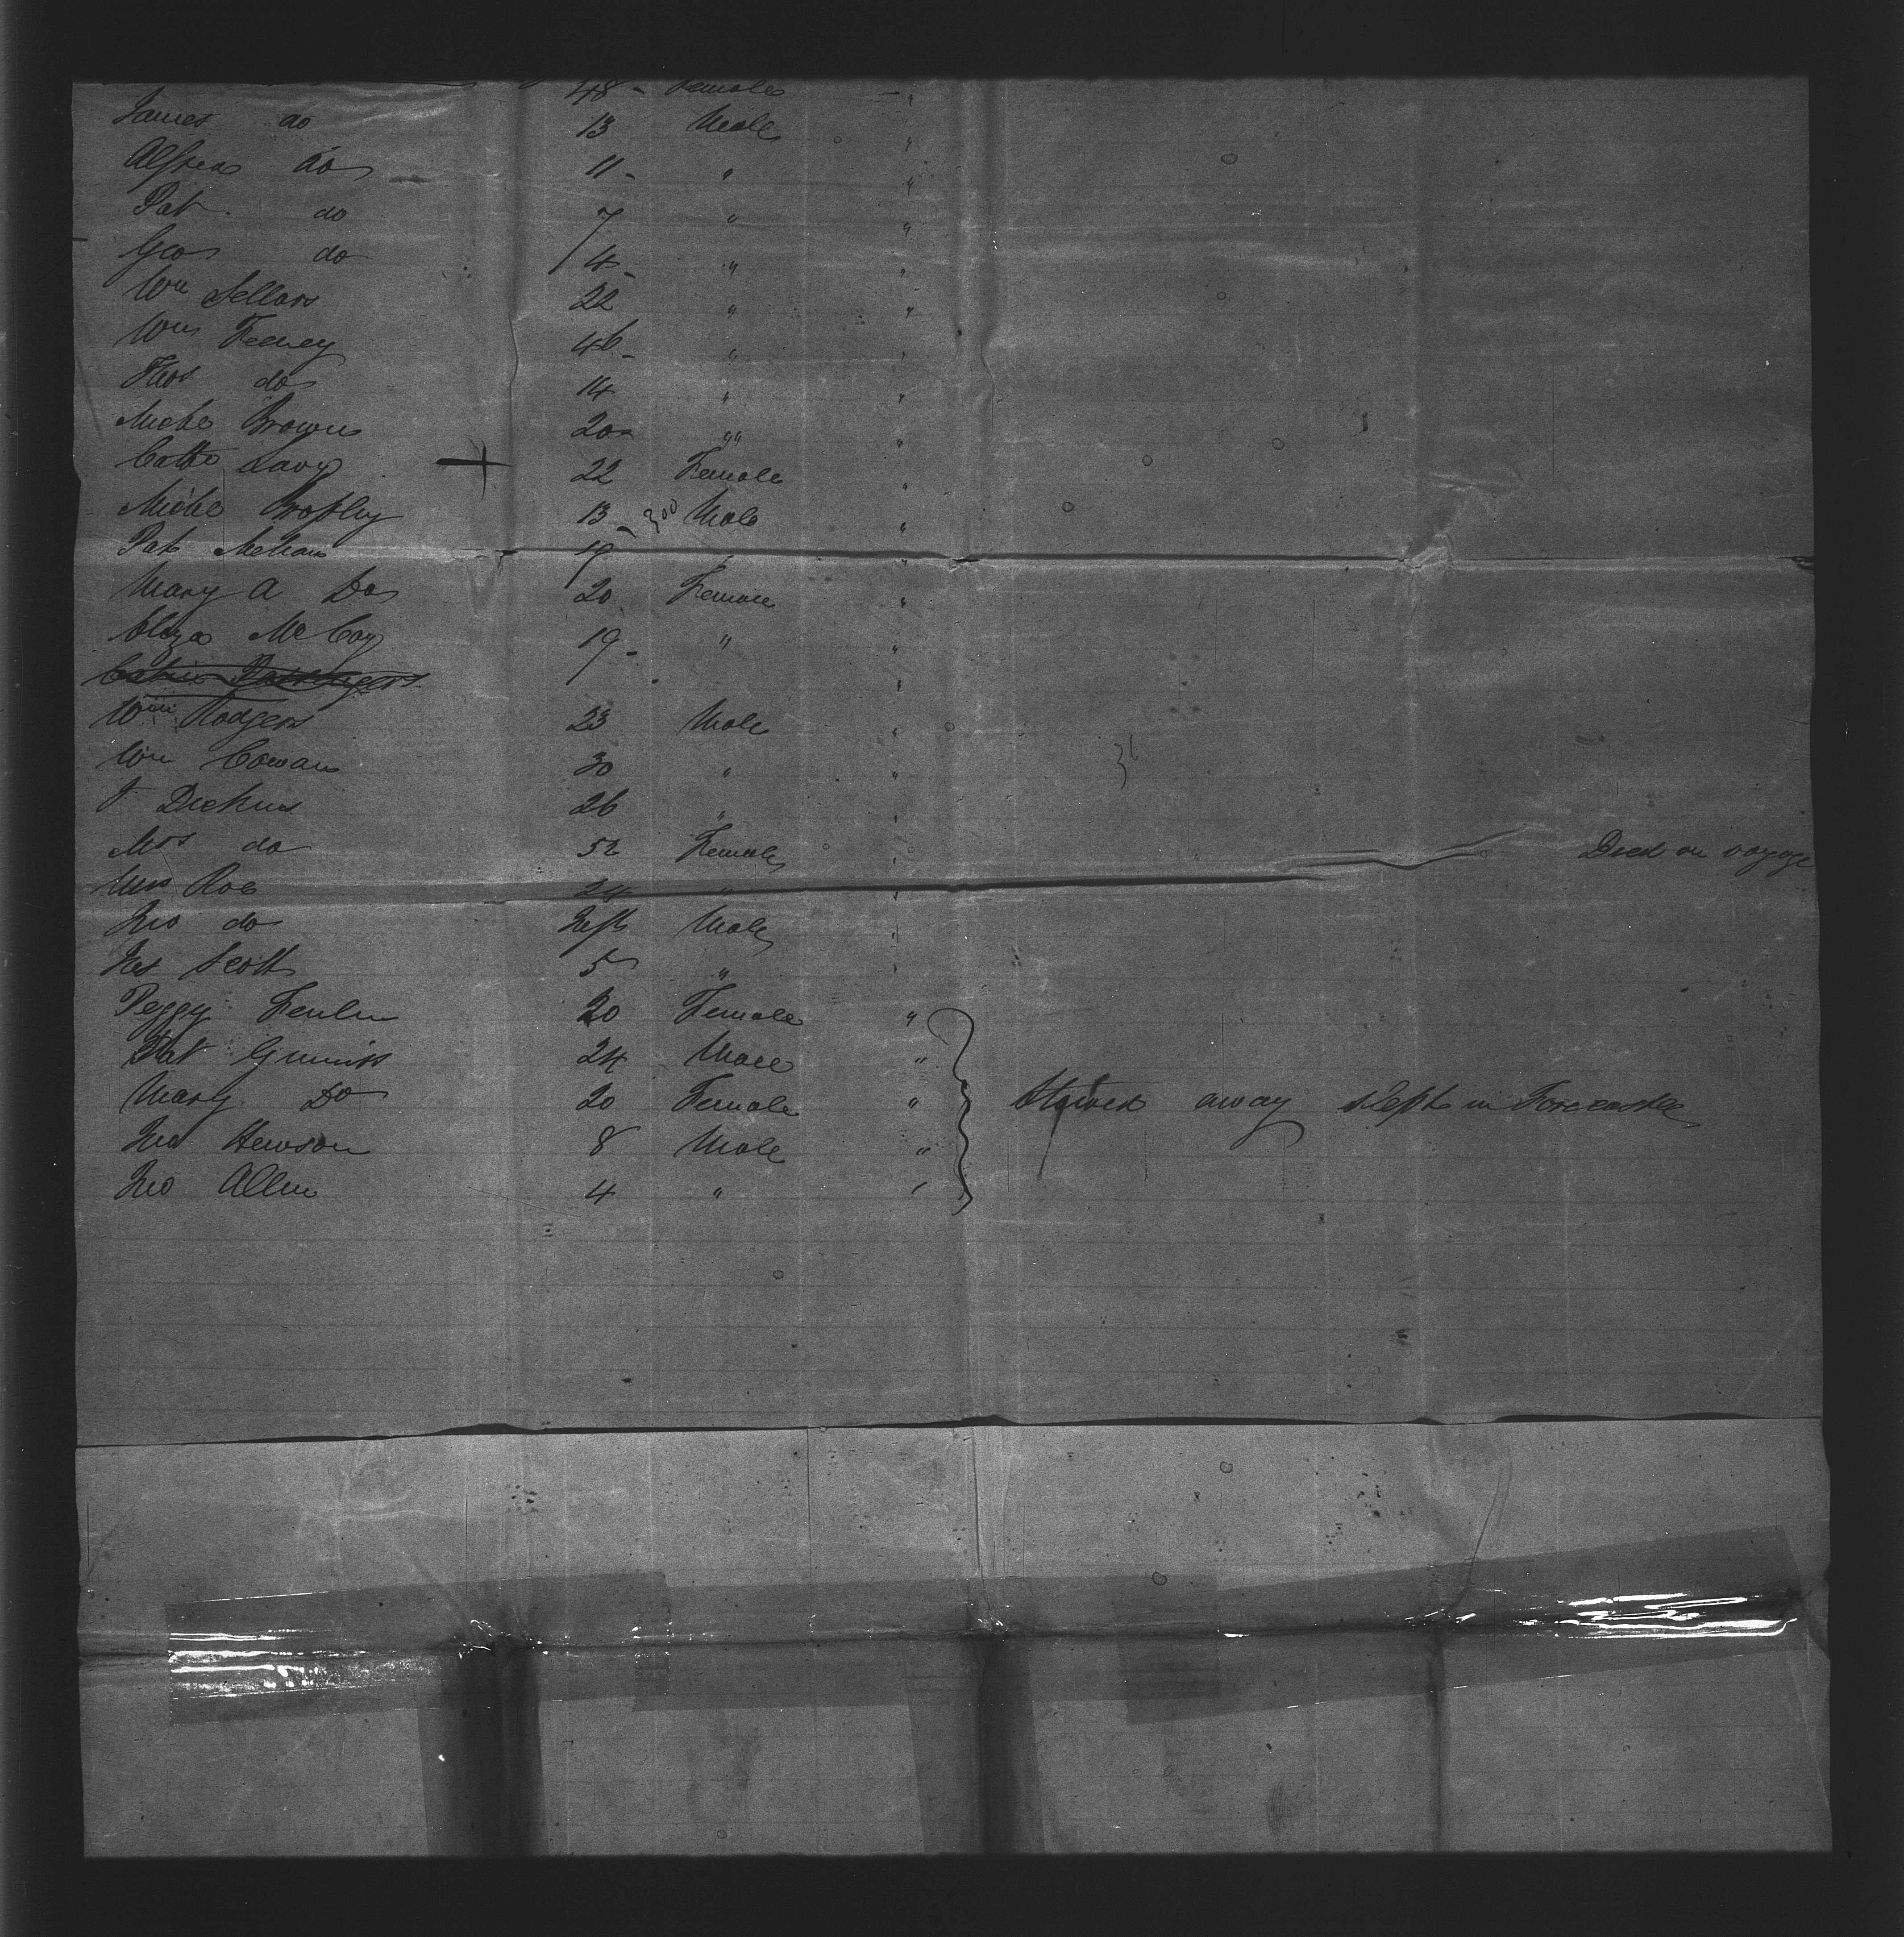 48 - Female - "
James do 13 Male "
Alfred do 11 - " "
Pat. do 7 " "
Geo do 4 - " "
Wm Sellars 22 " "
Wm Feeney 46 - " "
Thos do 14 " "
Michl Brown 20 " "
Cathe Lavy + 22 Female "
Michl Brophy 13 - 300 Male "
Pat Mehan 19 " "
Mary A Do 20 Female "
Eliza McCoy 19 - " "
Cabin Passengers "
Wm Rodgers 23 Male "
Wm Cowan 30 " "
J Dickins 26 " "
Mrs do 52 Female " Died on voyage
Mrs Roe 24 " "
Jno do Inft Male "
Jas Scott 5 " "
Peggy 20 Female "
Pat 24 Male "
Mary Do 20 Female " Stowed away slept in Forecastle
Jno Hewson 8 Male "
Jno Allen 4 " "